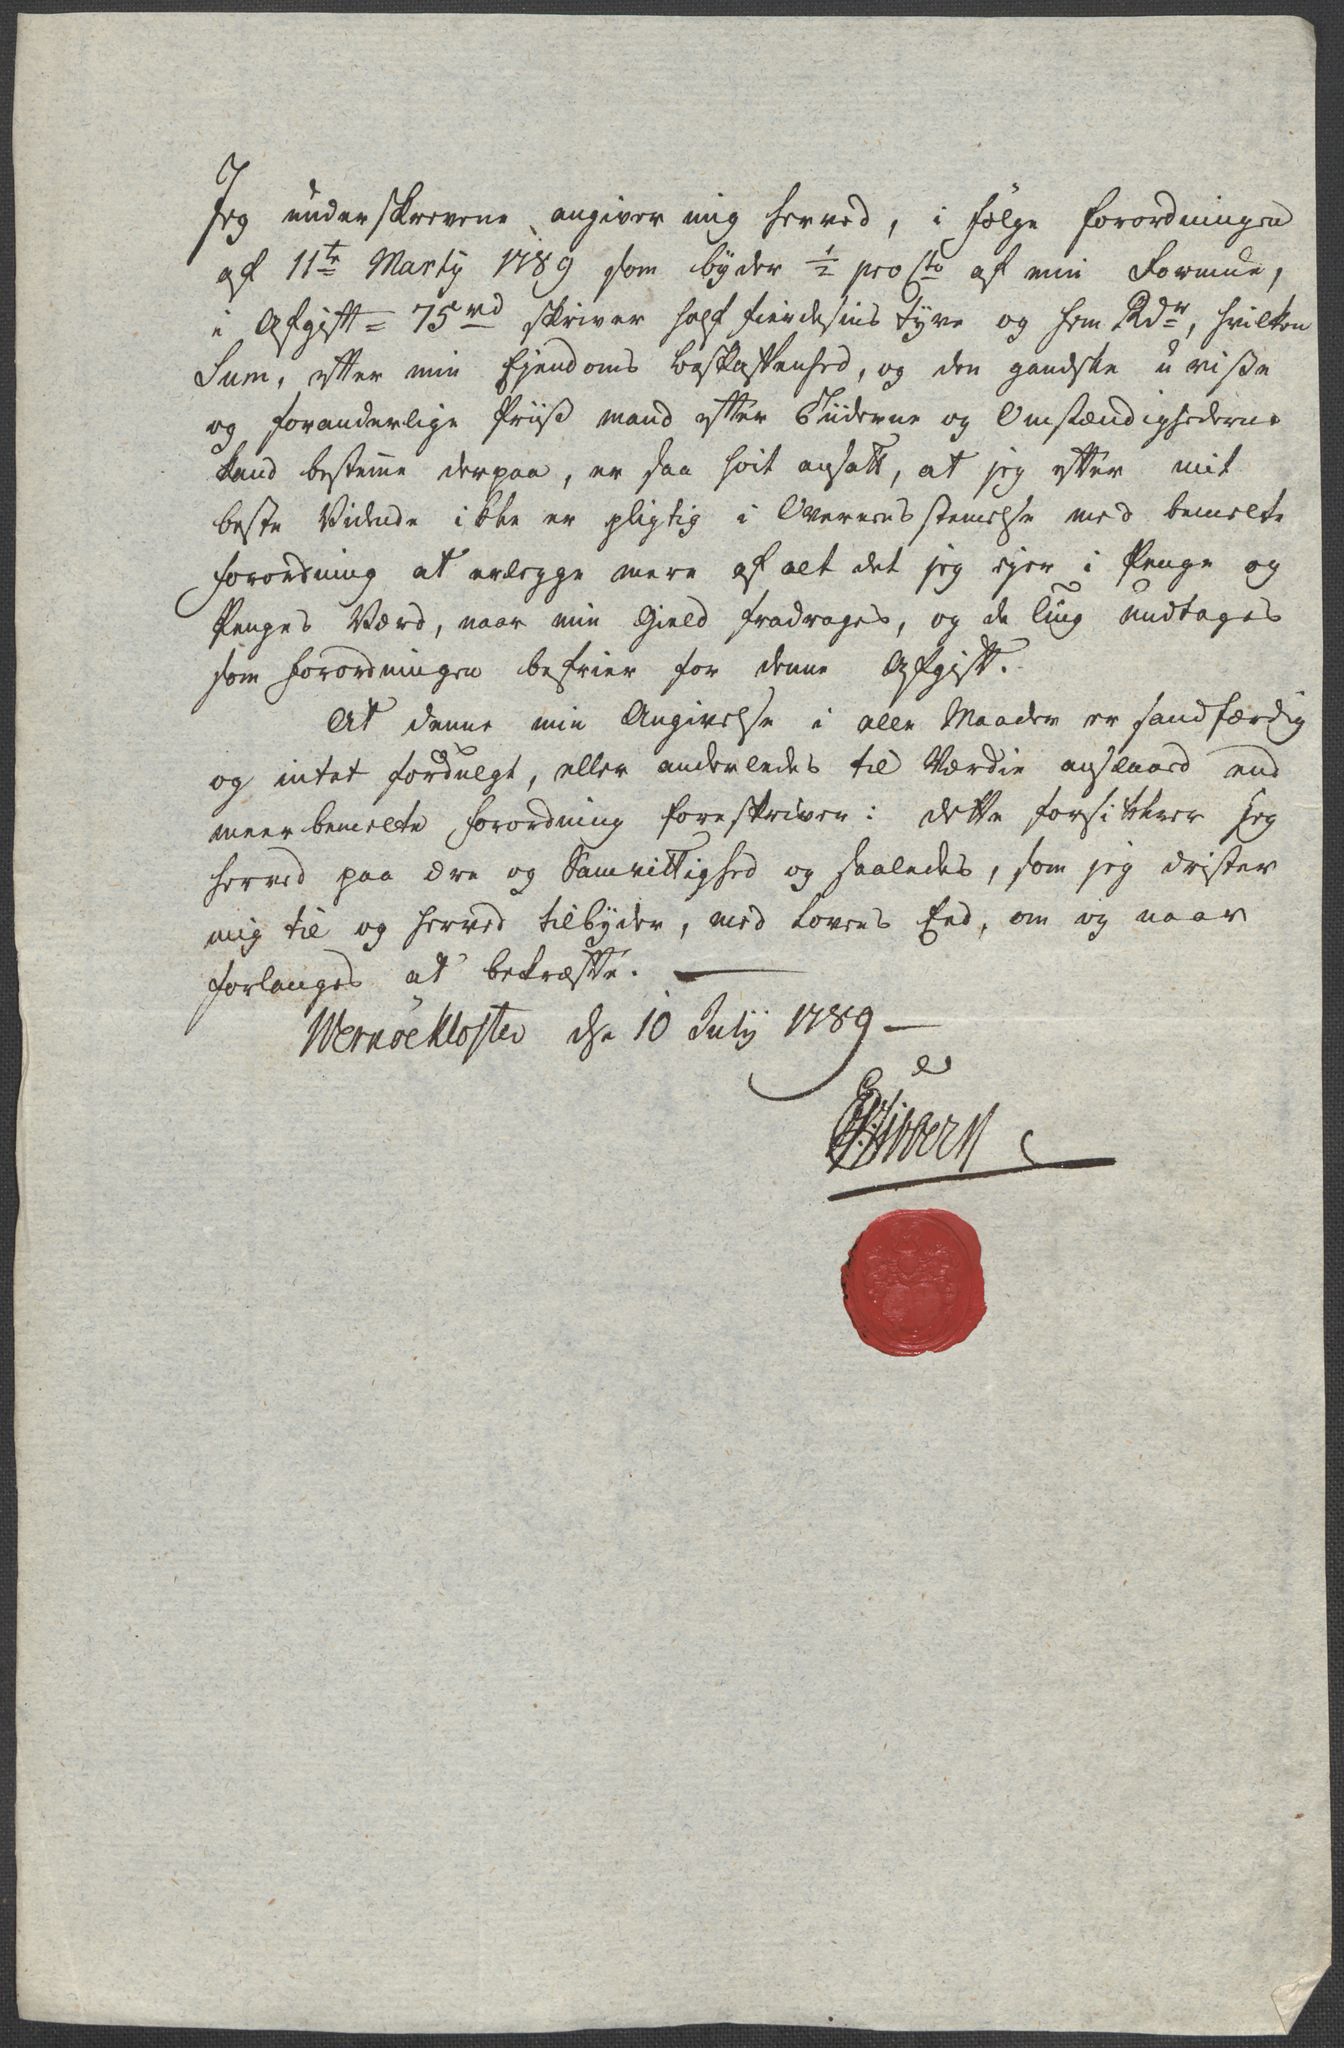 Jeg underskrevne angiver mig herved, i følge Forordningen
af 11te Martij 1789 som byder ½ pro Cto af min Formue,
i Afgift = 75 rd skriver half fierdesins tyve og fem Rdr, hvilken
Sum, efter min Ejendoms Beskaffenhed, og den gandske uvisse
og foranderlige Priis mand efter Tiiderne og Omstændighederne
kand bestemme derpaa, er saa høit ansatt, at jeg efter mit
beste Vidende ikke er pligtig i Overeensstemelse med bemelte
Forordning at erlegge mere af alt det jeg ejer i Penge og
Penges Værd, naar min Gield fradrages, og de Ting undtages
som Forordningen befrier for denne Afgift.
At denne min Angivelse i alle Maader er sandfærdig
og intet fordulgt, eller anderledes til Værdie anslaaed end
meerbemelte Forordning foreskriver: dette forsikkrer jeg
herved paa ære og Samvittighed og saaledes, som jeg drister
mig til og herved tilbyder, med Lovens Eed, om og naar
forlanges at bekræfte.
Wernøe Kloster dn 10 Julij 1789
Sibbern